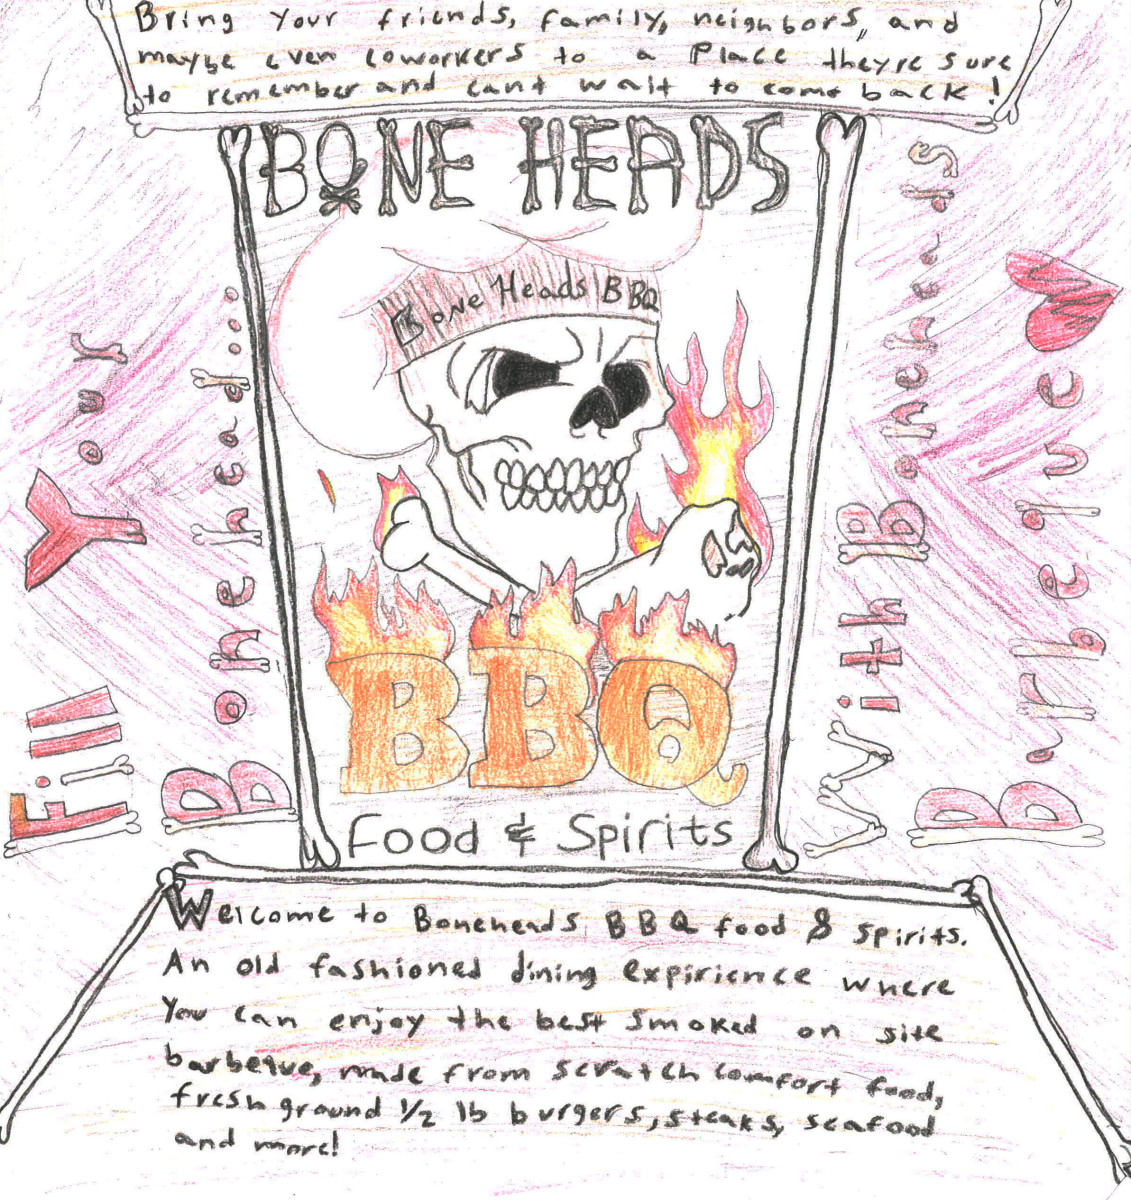 Bring your friends, family, neighbors, and
maybe even coworkers to a place theyre sure
to remember and cant wait to come back!
BONE HEADS
Bone Heads BBQ
Fill Your
Bonehead...
With Boneheads
Barbeque
BBQ
Food & Spirits
Welcome to Boneheads BBQ food & spirits.
An old fashioned dining expirience where
you can enjoy the best smoked on site
barbeque, made from scratch comfort food,
fresh ground 1/2 lb burgers, steaks, seafood
and more!